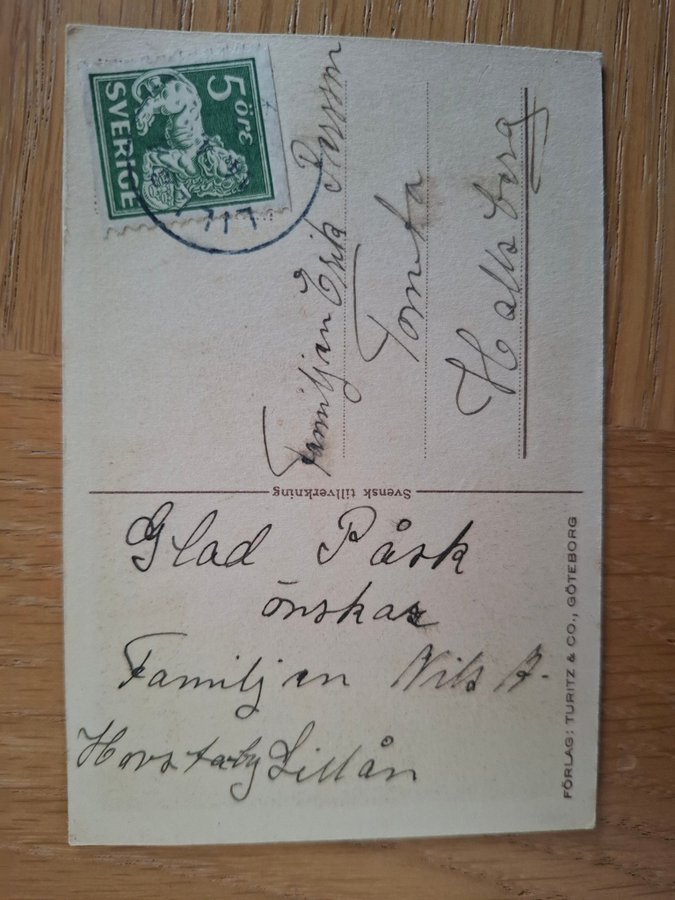 Glad Påsk
önskar
Familjen Nils B.
Hovstaby Lillån
Svensk tillverkning
5 ÖRE
SVERIGE
Familjen Erik Persson
Tomta
Hallsberg
FÖRLAG: TURITZ & CO., GÖTEBORG